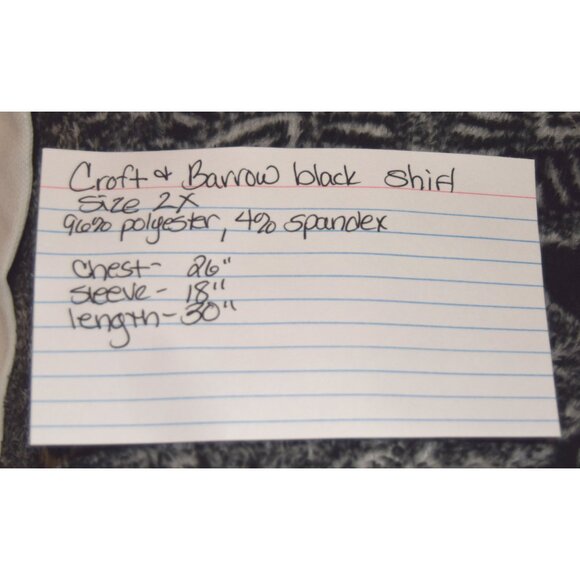 Croft & Barrow black shirt
size 2X
96% polyester, 4% spandex
chest- 26"
sleeve- 18"
length- 30"